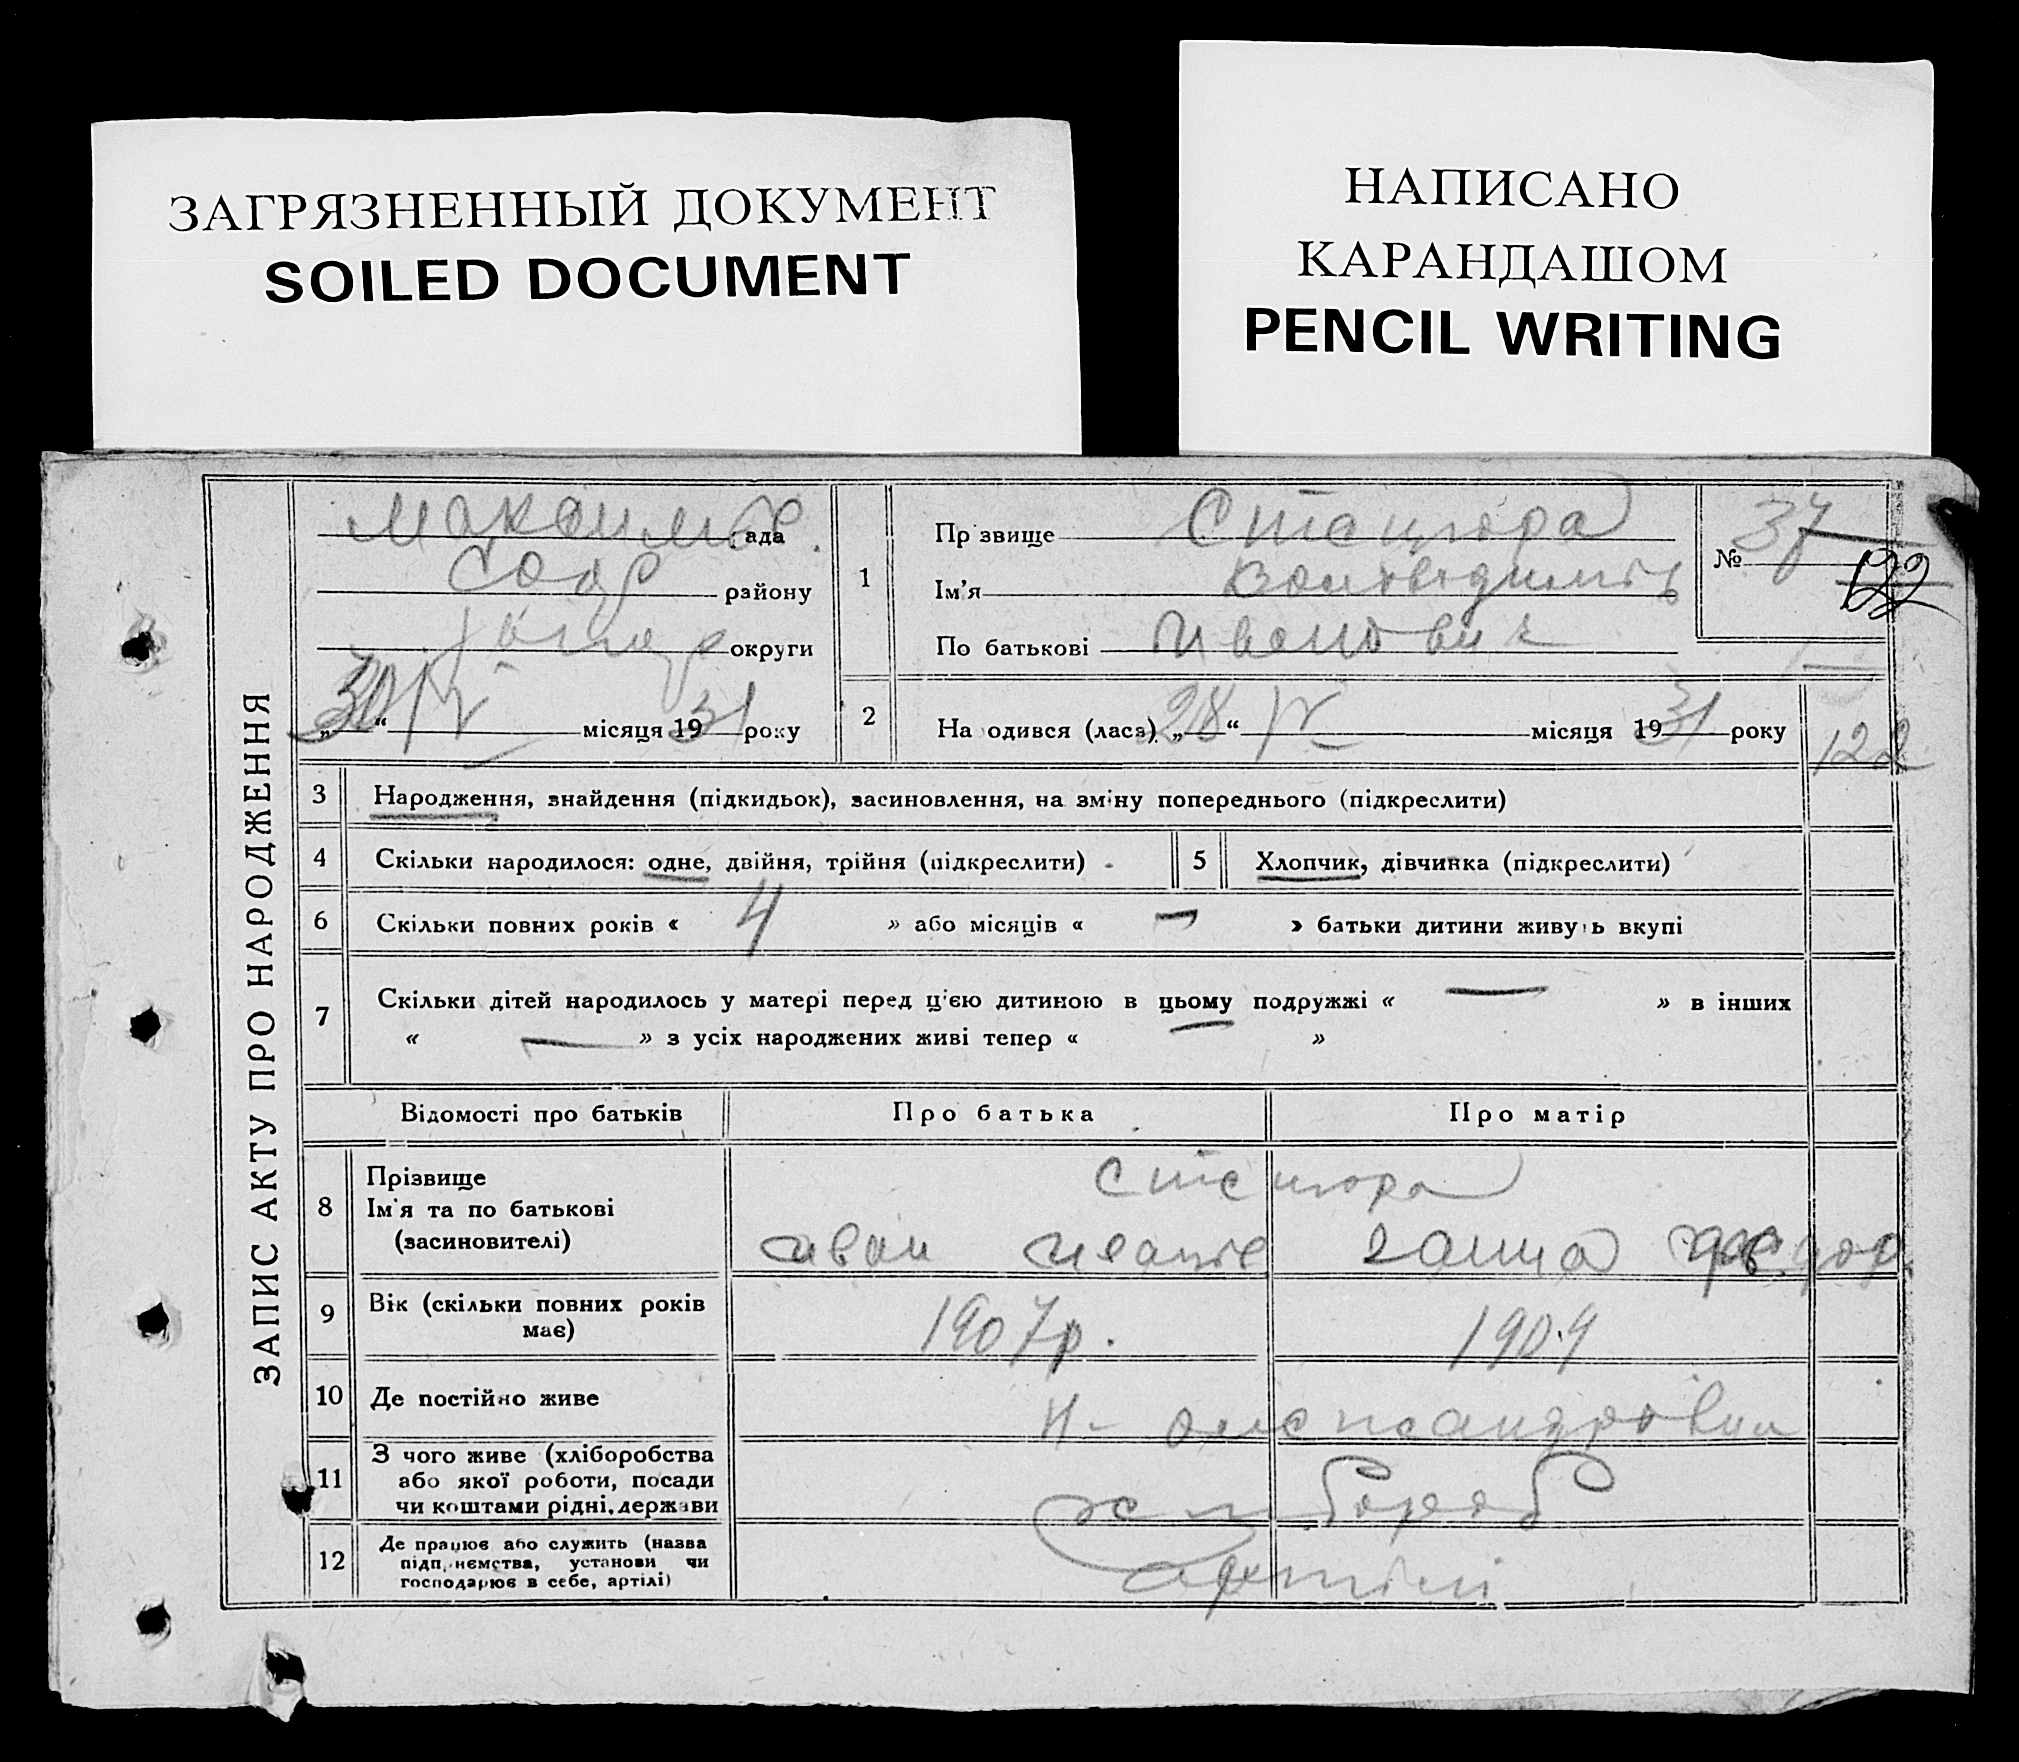 ЗАГРЯЗНЕННЫЙ ДОКУМЕНТ
SOILED DOCUMENT
НАПИСАНО
КАРАНДАШОМ
PENCIL WRITING
ЗАПИС АКТУ ПРО НАРОДЖЕННЯ
ада
району
округи
„30“ IV місяця 1931 року
1
Пр звище
Ім'я
По батькові Иванович
№ 37
122
2 На одився (лася) „28“ IV місяця 1931 року
122
3 Народження, знайдення (підкидьок), засиновлення, на зміну попереднього (підкреслити)
4 Скільки народилося: одне, двійня, трійня (підкреслити)
5 Хлопчик, дівчинка (підкреслити)
6 Скільки повних років « 4 » або місяців « — » батьки дитини живуть вкупі
7 Скільки дітей народилось у матері перед цією дитиною в цьому подружжі « — » в інших
« — » з усіх народжених живі тепер « »
Відомості про батьків Про батька Про матір
8 Прізвище
Ім'я та по батькові
(засиновителі)
иван ганна
9 Вік (скільки повних років
має)
1907р. 1904
10 Де постійно живе
11 З чого живе (хліборобства
або якої роботи, посади
чи коштами рідні, держави
12 Де працює або служить (назва
підп иємства, установи чи
господарює в себе, артілі)
артілі